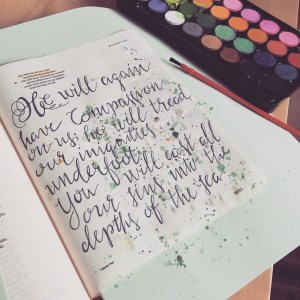 He will again
have compassion
on us; he will tread
our iniquities
underfoot.
You will cast all
our sins into the
depths of the sea.